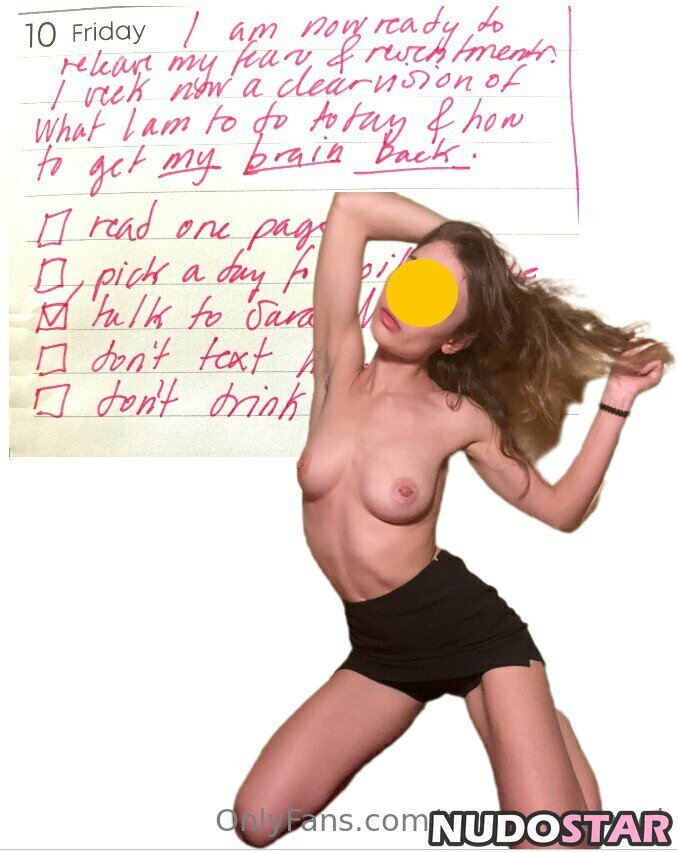 10 Friday I am now ready to
release my fear & resentments.
I seek now a clear vision of
What I am to do today & how
to get my brain back.
read one page
pick a day fo
talk to Sara
don't text
don't drink
OnlyFans.com/
NUDOSTAR